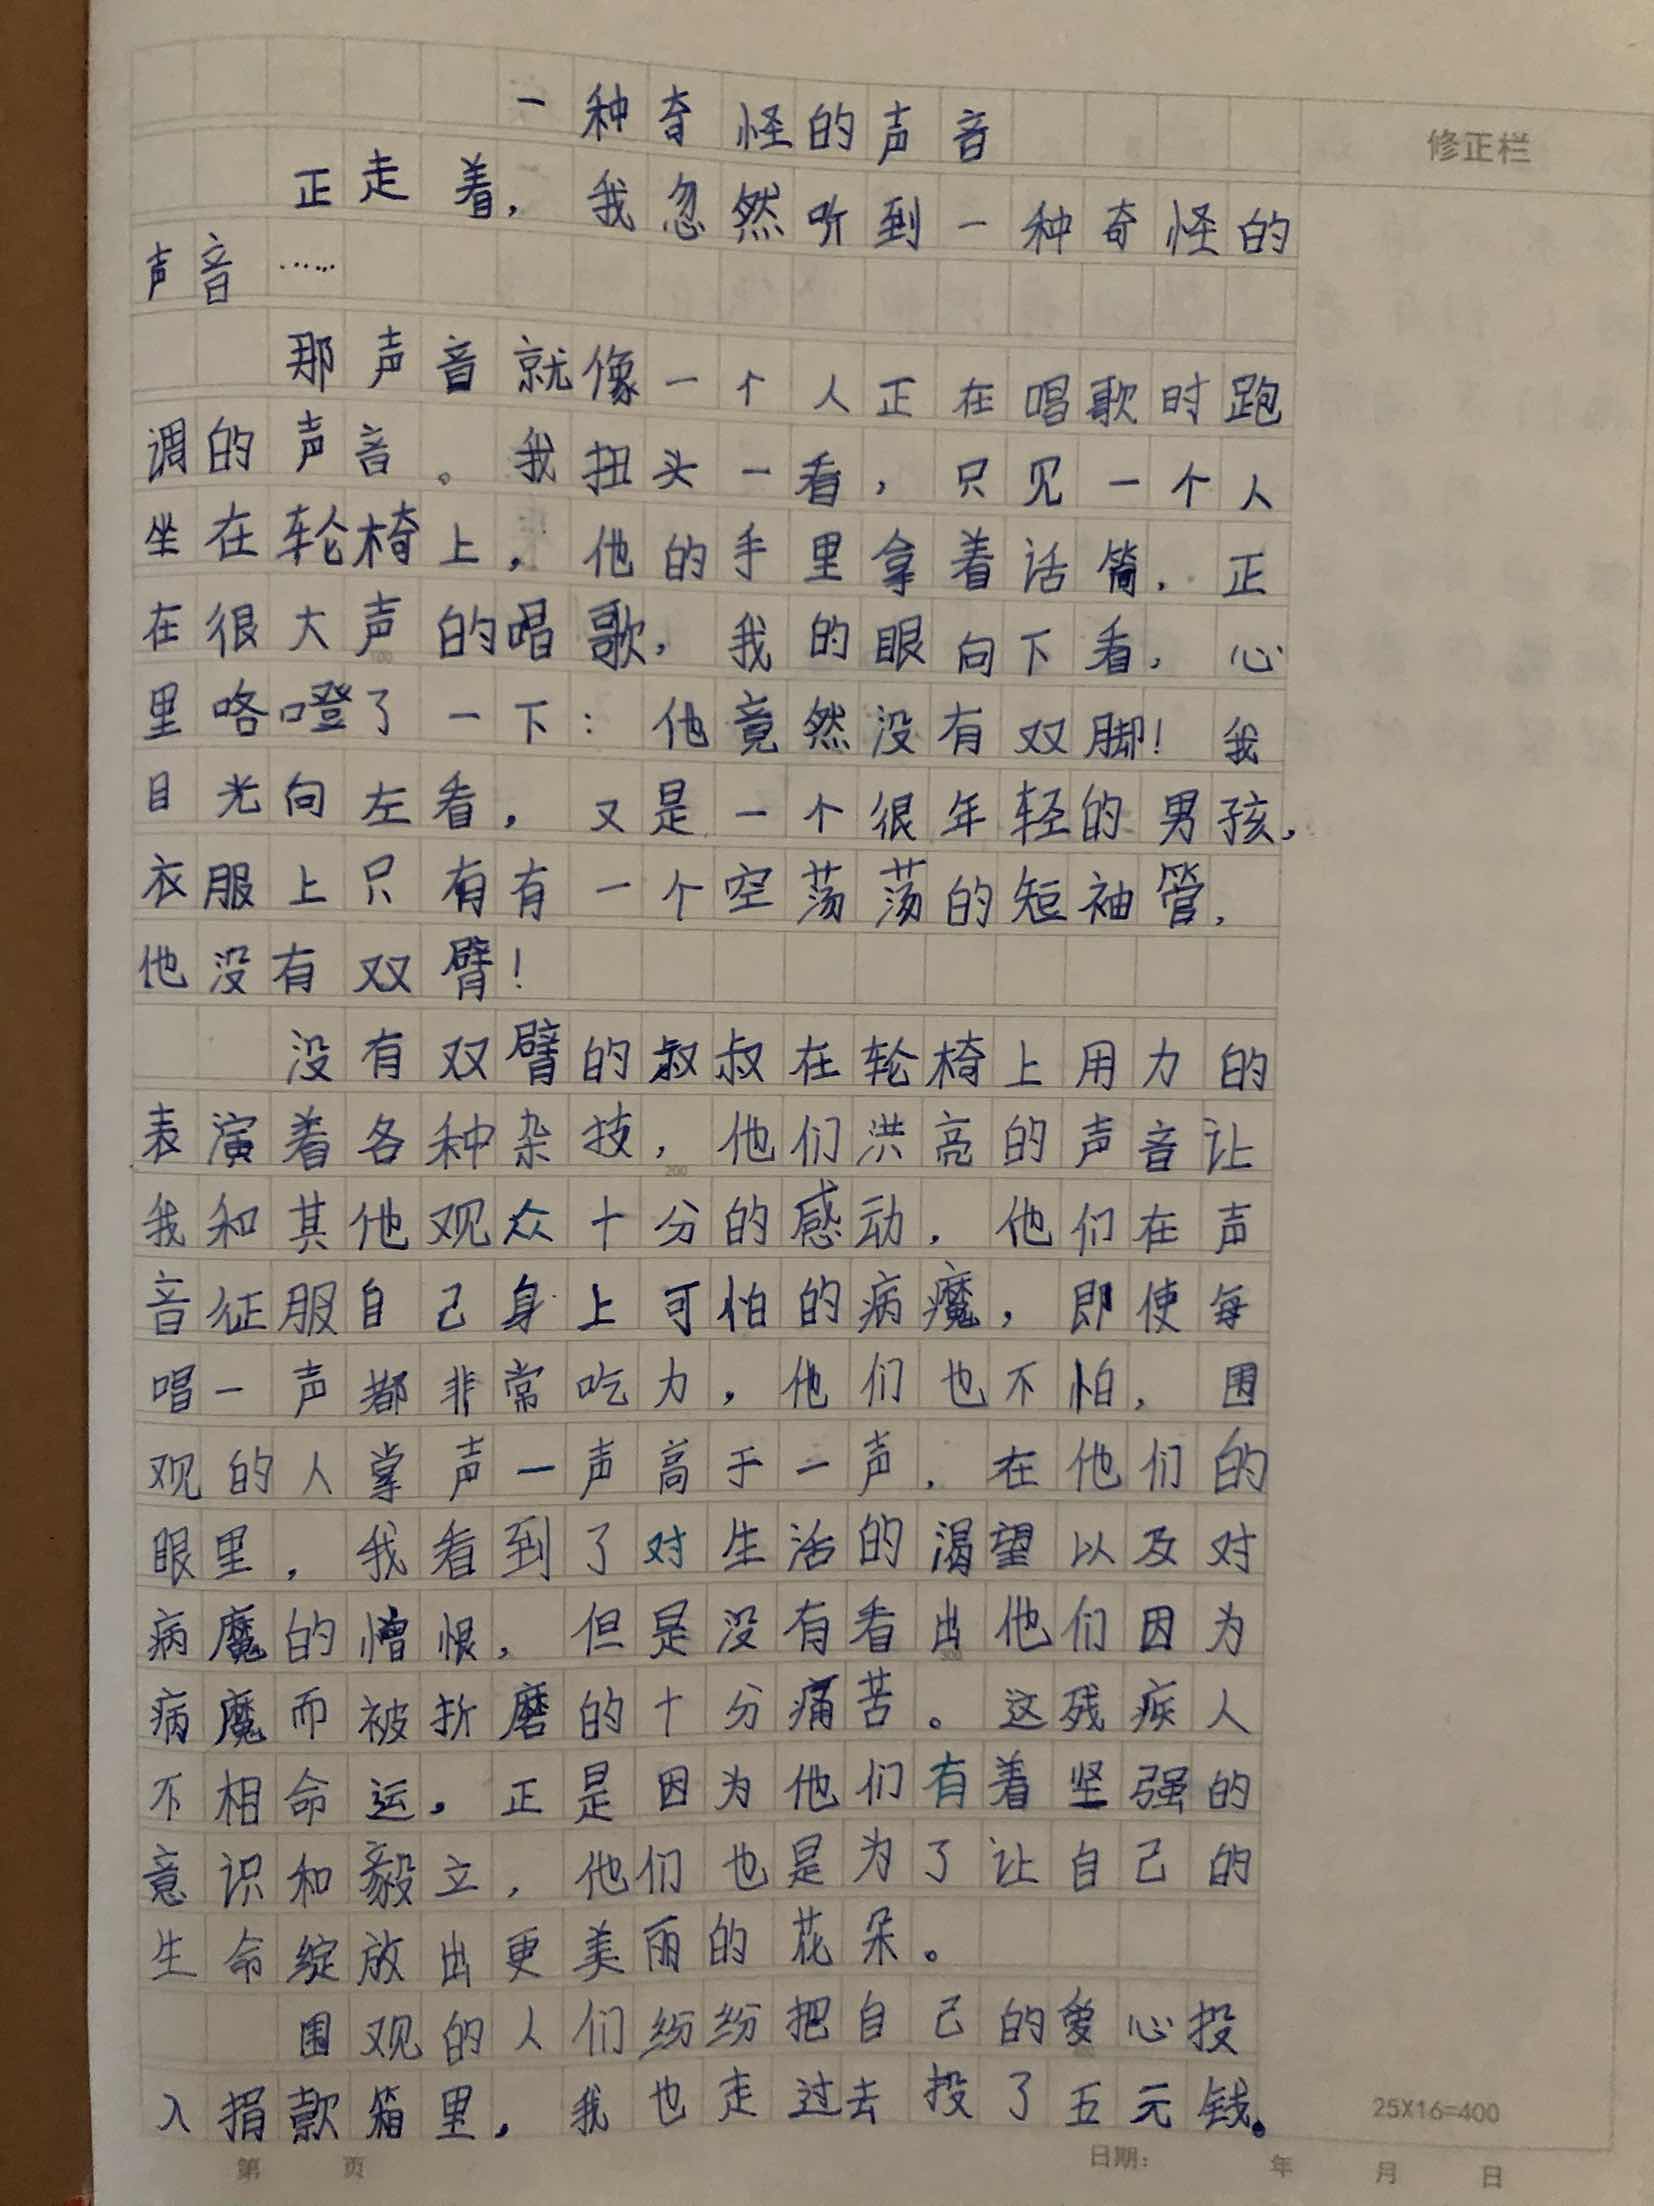 一种奇怪的声音
修正栏
正走着，我忽然听到一种奇怪的
声音……
那声音就像一个人正在唱歌时跑
调的声音。我扭头一看，只见一个人
坐在轮椅上，他的手里拿着话筒，正
在很大声的唱歌，我的眼向下看，心
里咯噔了一下：他竟然没有双脚！我
目光向左看，又是一个很年轻的男孩，
衣服上只有有一个空荡荡的短袖管，
他没有双臂！
没有双臂的叔叔在轮椅上用力的
表演着各种杂技，他们洪亮的声音让
我和其他观众十分的感动，他们在声
音征服自己身上可怕的病魔，即使每
唱一声都非常吃力，他们也不怕，围
观的人掌声一声高于一声，在他们的
眼里，我看到了对生活的渴望以及对
病魔的憎恨，但是没有看出他们因为
病魔而被折磨的十分痛苦。这残疾人
不相命运，正是因为他们有着坚强的
意识和毅立，他们也是为了让自己的
生命绽放出更美丽的花朵。
围观的人们纷纷把自己的爱心投
入捐款箱里，我也走过去投了五元钱。
25X16=400
第 页 日期： 年 月 日